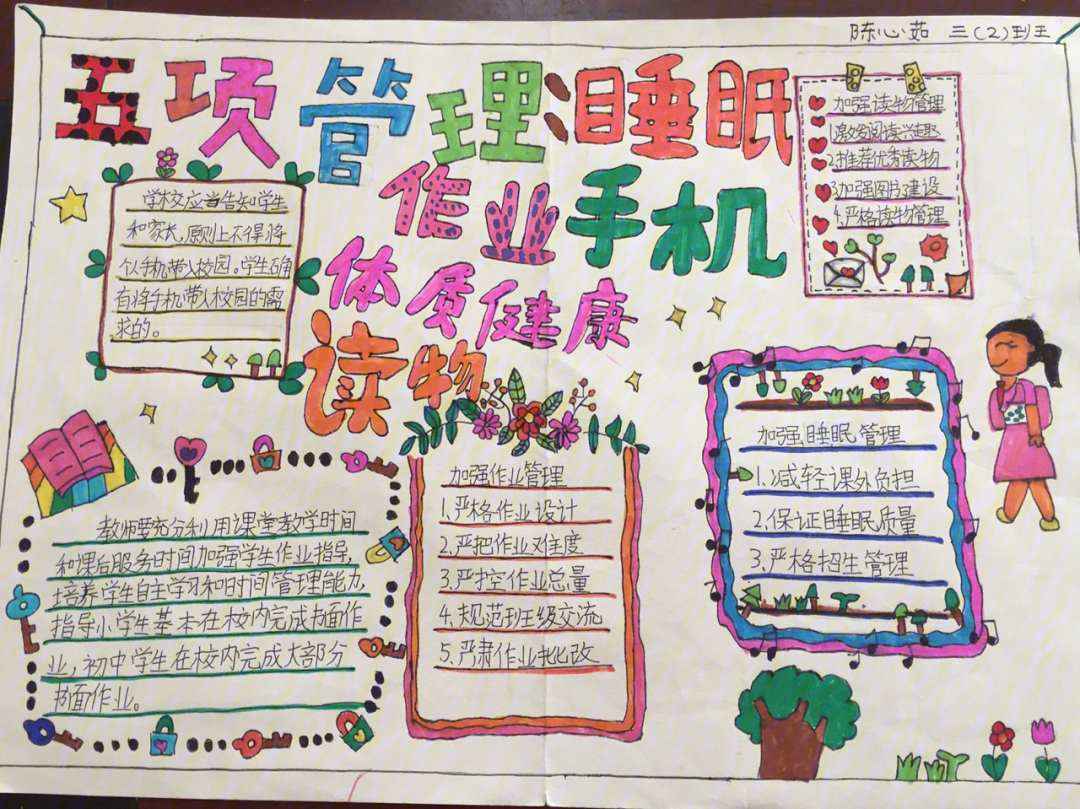 陈心茹 三(2)班
五项管理:睡眠
作业手机
体质健康
读物
学校应当告知学生
和家长,原则上不得将
个人手机带入校园。学生确
有将手机带入校园的需
求的。
加强读物管理
1.激发阅读兴趣
2.推荐优秀读物
3.加强图书建设
4.严格读物管理
教师要充分利用课堂教学时间
和课后服务时间加强学生作业指导,
培养学生自主学习和时间管理能力,
指导小学生基本在校内完成书面作
业,初中学生在校内完成大部分
书面作业。
加强作业管理
1.严格作业设计
2.严把作业难度
3.严控作业总量
4.规范班级交流
5.严肃作业批改
加强睡眠管理
1.减轻课外负担
2.保证睡眠质量
3.严格招生管理